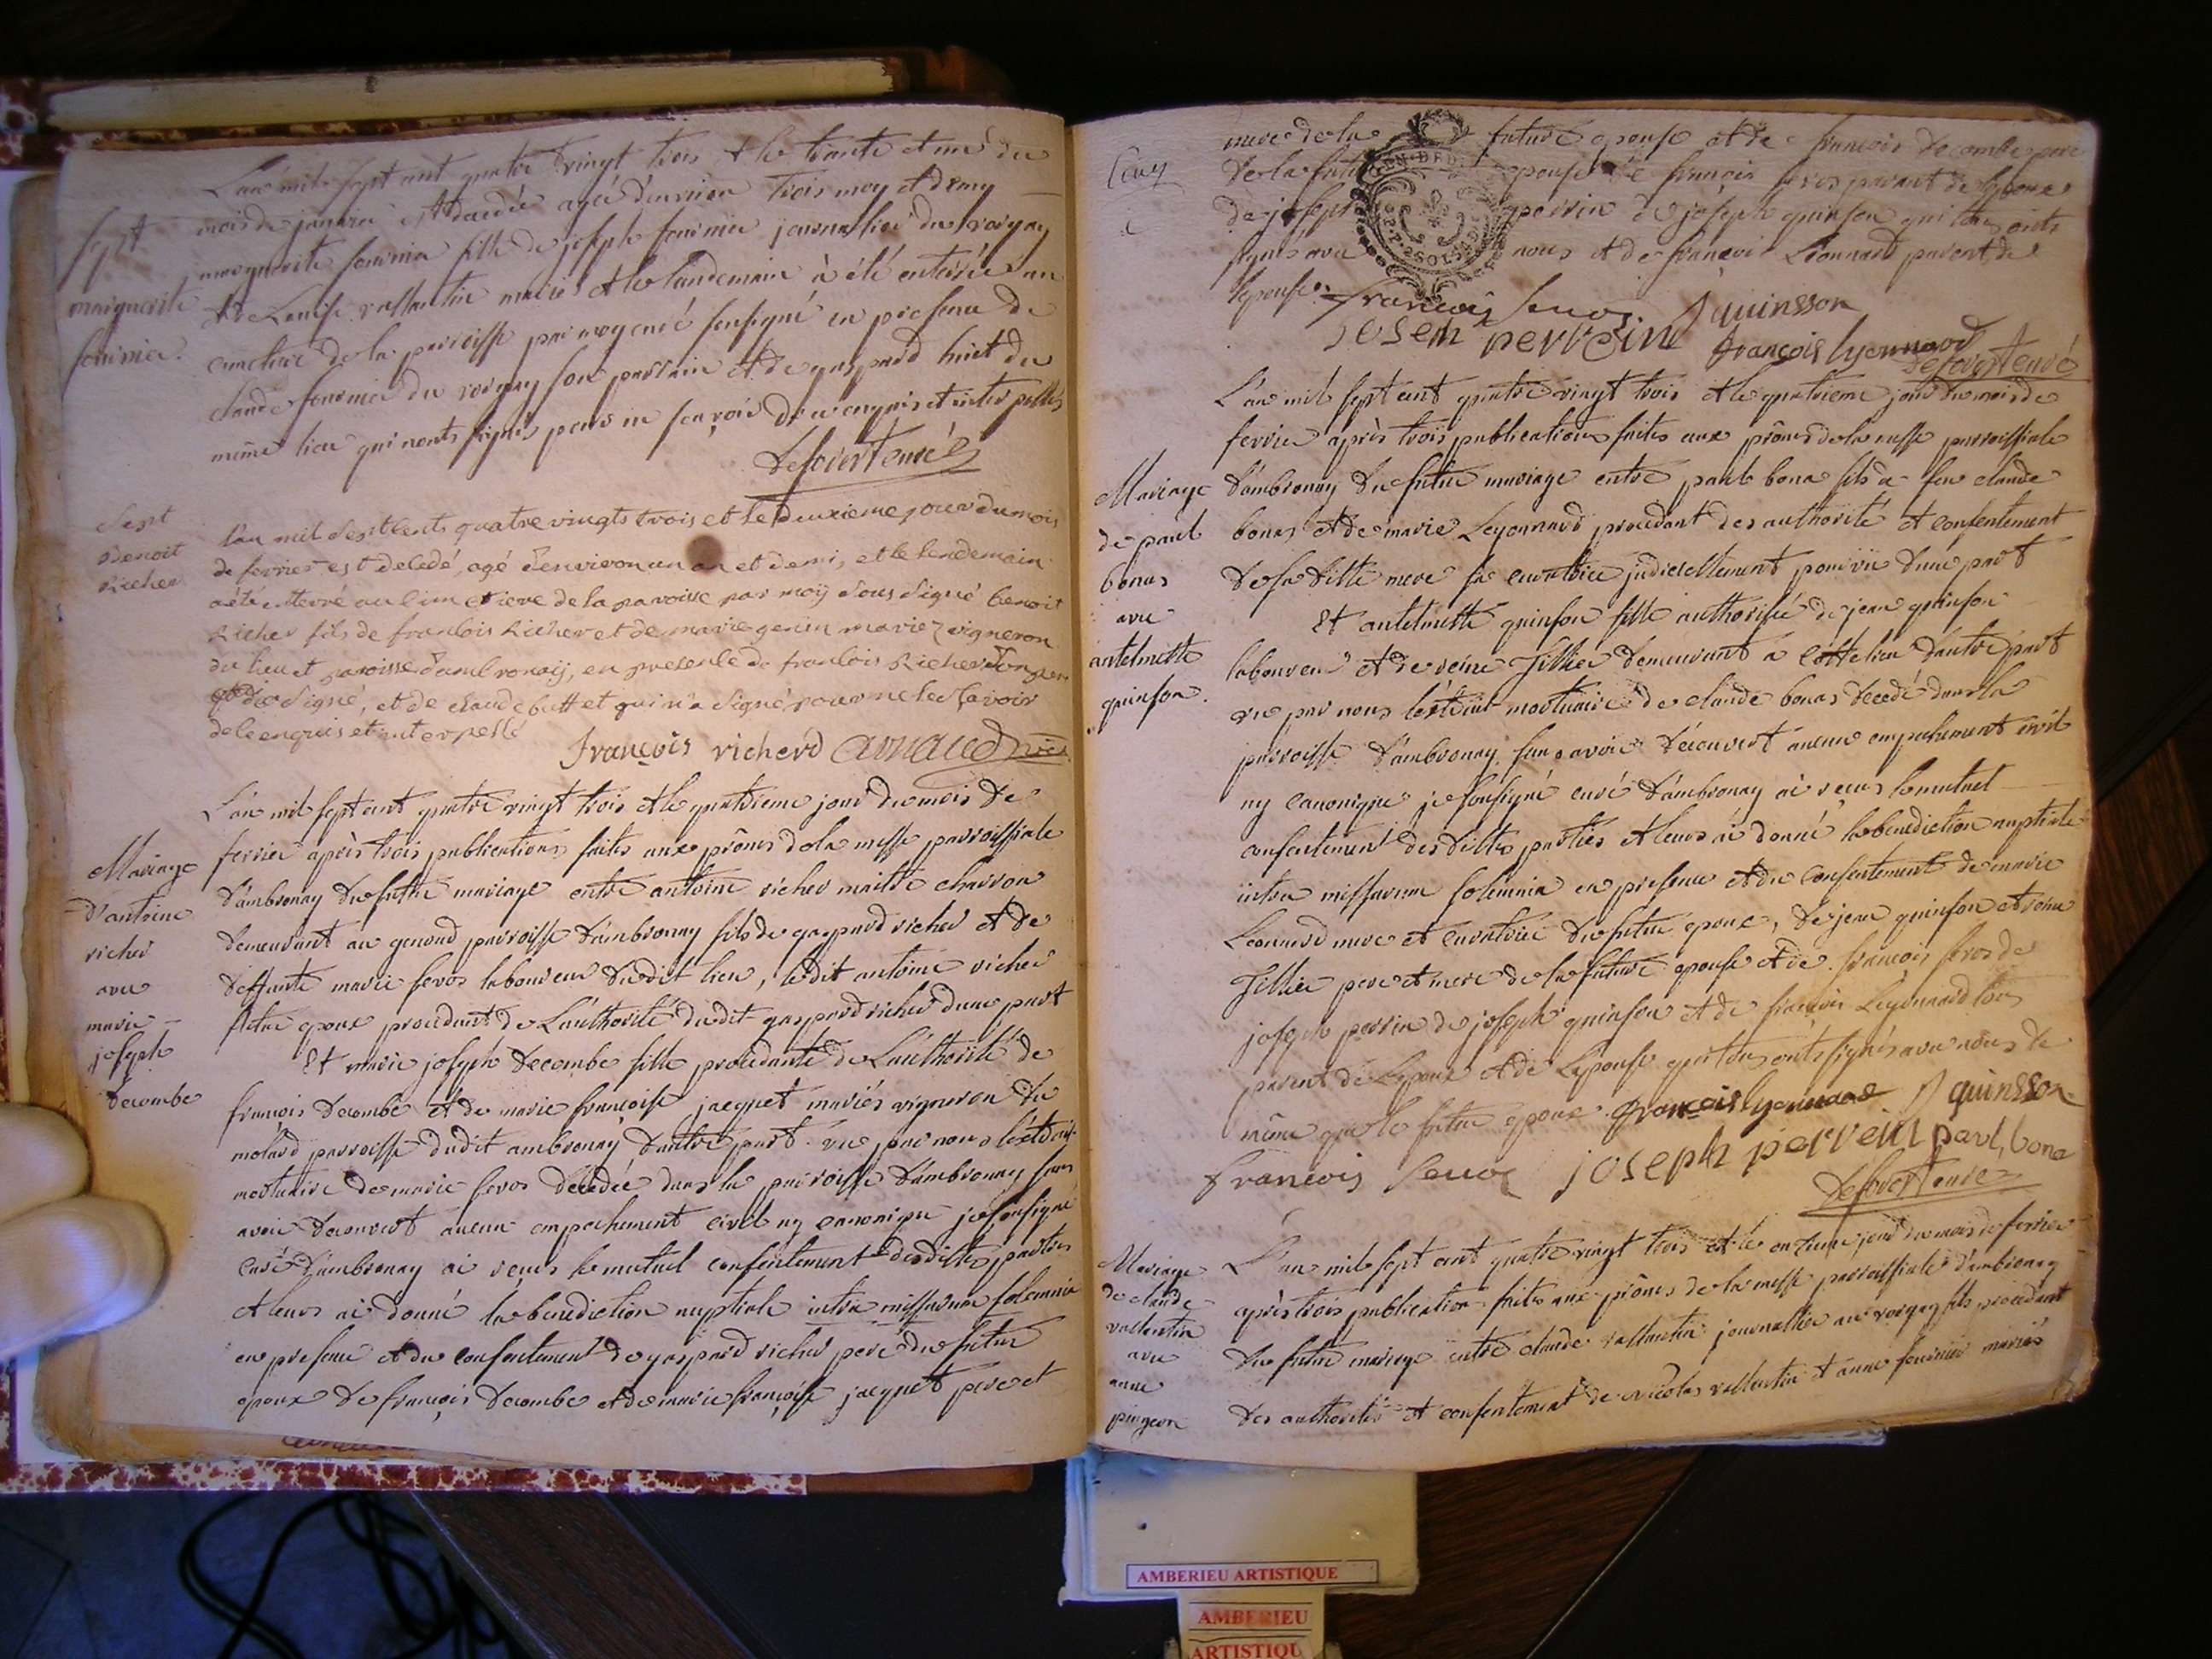 L'an mil sept cent quatre vingt trois et le trante et un du
mois de janvier est decedée agée d'environ trois moy et demy
marguerite fournier fille de joseph fournier journallier du vorgey
et de Louise vallantin mariés et le landemain à été enterrée au
cimetiere de la parroisse par moy curé sousigné en presence de
claude fournier du vorgey son parrain et de gaspard huict du
même lieu qui nonts signés pour ne sçavoir de ce enquis et interpellés
Sept
marguerite
fournier.
Sept
Benoit
Richer
l'an mil sept cents quatre vingts trois et le deuxieme jour du mois
de fevrier est decedé, agé d'environ un an et demi, et le lendemain
a été enterré au cimetiere de la paroisse par moÿ sous signé benoit
Richer fils de francois Richer et de marie genin mariez vigneron
du lieu et paroisse d'ambronaÿ, en presence de francois Richer
signé, et de claude buttet qui n'a signé pour ne le sçavoir
de ce enquis et interpellé
françois richerd arnaud vic.
Mariage
d'antoine
richer
avec
marie
joseph
decombe
L'an mil sept cent quatre vingt trois et le quatrieme jour du mois de
fevrier après trois publications faites aux prônes de la messe parroissiale
d'ambronay du futur mariage entre antoine richer maitre charron
demeurant au genoud parroisse d'ambronay fils de gaspard richer et de
deffunte marie feros laboureur dudit lieu, ledit antoine richer
futur epoux procedant de L'authorité dudit gaspard richer d'une part
Et marie joseph decombe fille procedante de L'authorité de
françois decombe et de marie françoise jacquet mariés vigneron du
molard parroisse dudit ambronay d'autre part vu par nous l'extrait
mortuaire de marie feros decedée dans la parroisse d'ambronay sans
avoir decouvert aucun empechement civil ny canonique je sousigné
curé d'ambronay ai reçus le mutuel consentement desdittes parties
et leurs ai donné la benediction nuptiale intra missarum solemnia
en presence et du consentement de gaspard richer pere du futur
epoux de françois decombe et de marie françoise jacquet pere et
mere de la future epouse et de françois decombe pere
de la future epouse de françois feros parent de lepoux
de joseph perrin de joseph quinson qui tous onts
signés avec nous et de françois Léonnard parent de
lepouse. françois feros J quinsson
Joseph perrein françois lyonnard
Mariage
de paul
bonas
avec
antelmette
quinson.
L'an mil sept cent quatre vingt trois et le quatrieme jour du mois de
fevrier après trois publications faites aux prônes de la messe parroissiale
d'ambronay du futur mariage entre paul bona fils à feu claude
bonas et de marie Leyonnard procedant des authorité et consentement
de sa ditte mere sa curatrice judiciellement pourvüe d'une part
Et antelmette quinson fille authorisée de jean quinson
laboureur et de reine Tillier demeurant a cotte lieu d'autre part
vu par nous l'extrait mortuaire de claude bonas decedé dans la
parroisse d'ambronay sans avoir decouvert aucun empechement civil
ny canonique je sousigné curé d'ambronay ai reçus le mutuel
consentement des dittes parties et leurs ai donné la benediction nuptiale
intra missarum solemnia en presence et du consentement de marie
Leonnard mere et curatrice du futur epoux, de jean quinson et reine
Tillier pere et mere de la future epouse et de françois feros de
joseph perrin de joseph quinson et de françois Leyonnard tous
parent de Lepoux et de Lepouse qui tous onts signés avec nous de
même que le futur epoux françois lyonnard J quinsson
françois feros joseph perrein paul bona
Mariage
de claude
vallentin
avec
anne
pingeon
L'an mil sept cent quatre vingt trois et le onzieme jour du mois de fevrier
après trois publication faites aux prônes de la messe parroissiale d'ambronay
du futur mariage entre claude vallentin journallier au vorgey fils procedant
des authorités et consentement de nicolas vallentin et anne fournier mariés
AMBERIEU ARTISTIQUE
AMBERIEU
ARTISTIQU